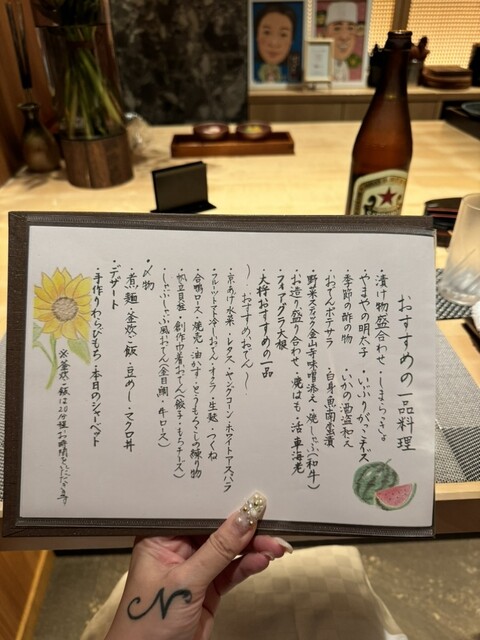 おすすめの一品料理
・漬け物盛合わせ・しまらっきょ
・やまやの明太子・いぶりがっこチーズ
・季節の酢の物・いかの酒盗和え
・おでんポテサラ・白身魚南蛮漬
・野菜スティック金山寺味噌添え・焼しゃぶ(和牛)
・お造り盛り合わせ・焼はも・活車海老
・フォアグラ大根
・大将おすすめの一品
～おすすめおでん～
・京あげ水菜・レタス・ヤングコーン・ホワイトアスパラ
・フルーツトマト冷しおでん・オクラ・生麩・つくね
・合鴨ロース・焼売・油かす・とうもろこしの練り物
・帆立貝柱・創作巾着おでん(餃子・もちチーズ)
・しゃぶしゃぶ風おでん(金目鯛・牛ロース)
・〆物
・煮麺・釜炊ご飯・豆めし・マグロ丼
・デザート
手作りわらびもち・本日のシャーベット
※釜炊ご飯は20分程お時間をいただきます